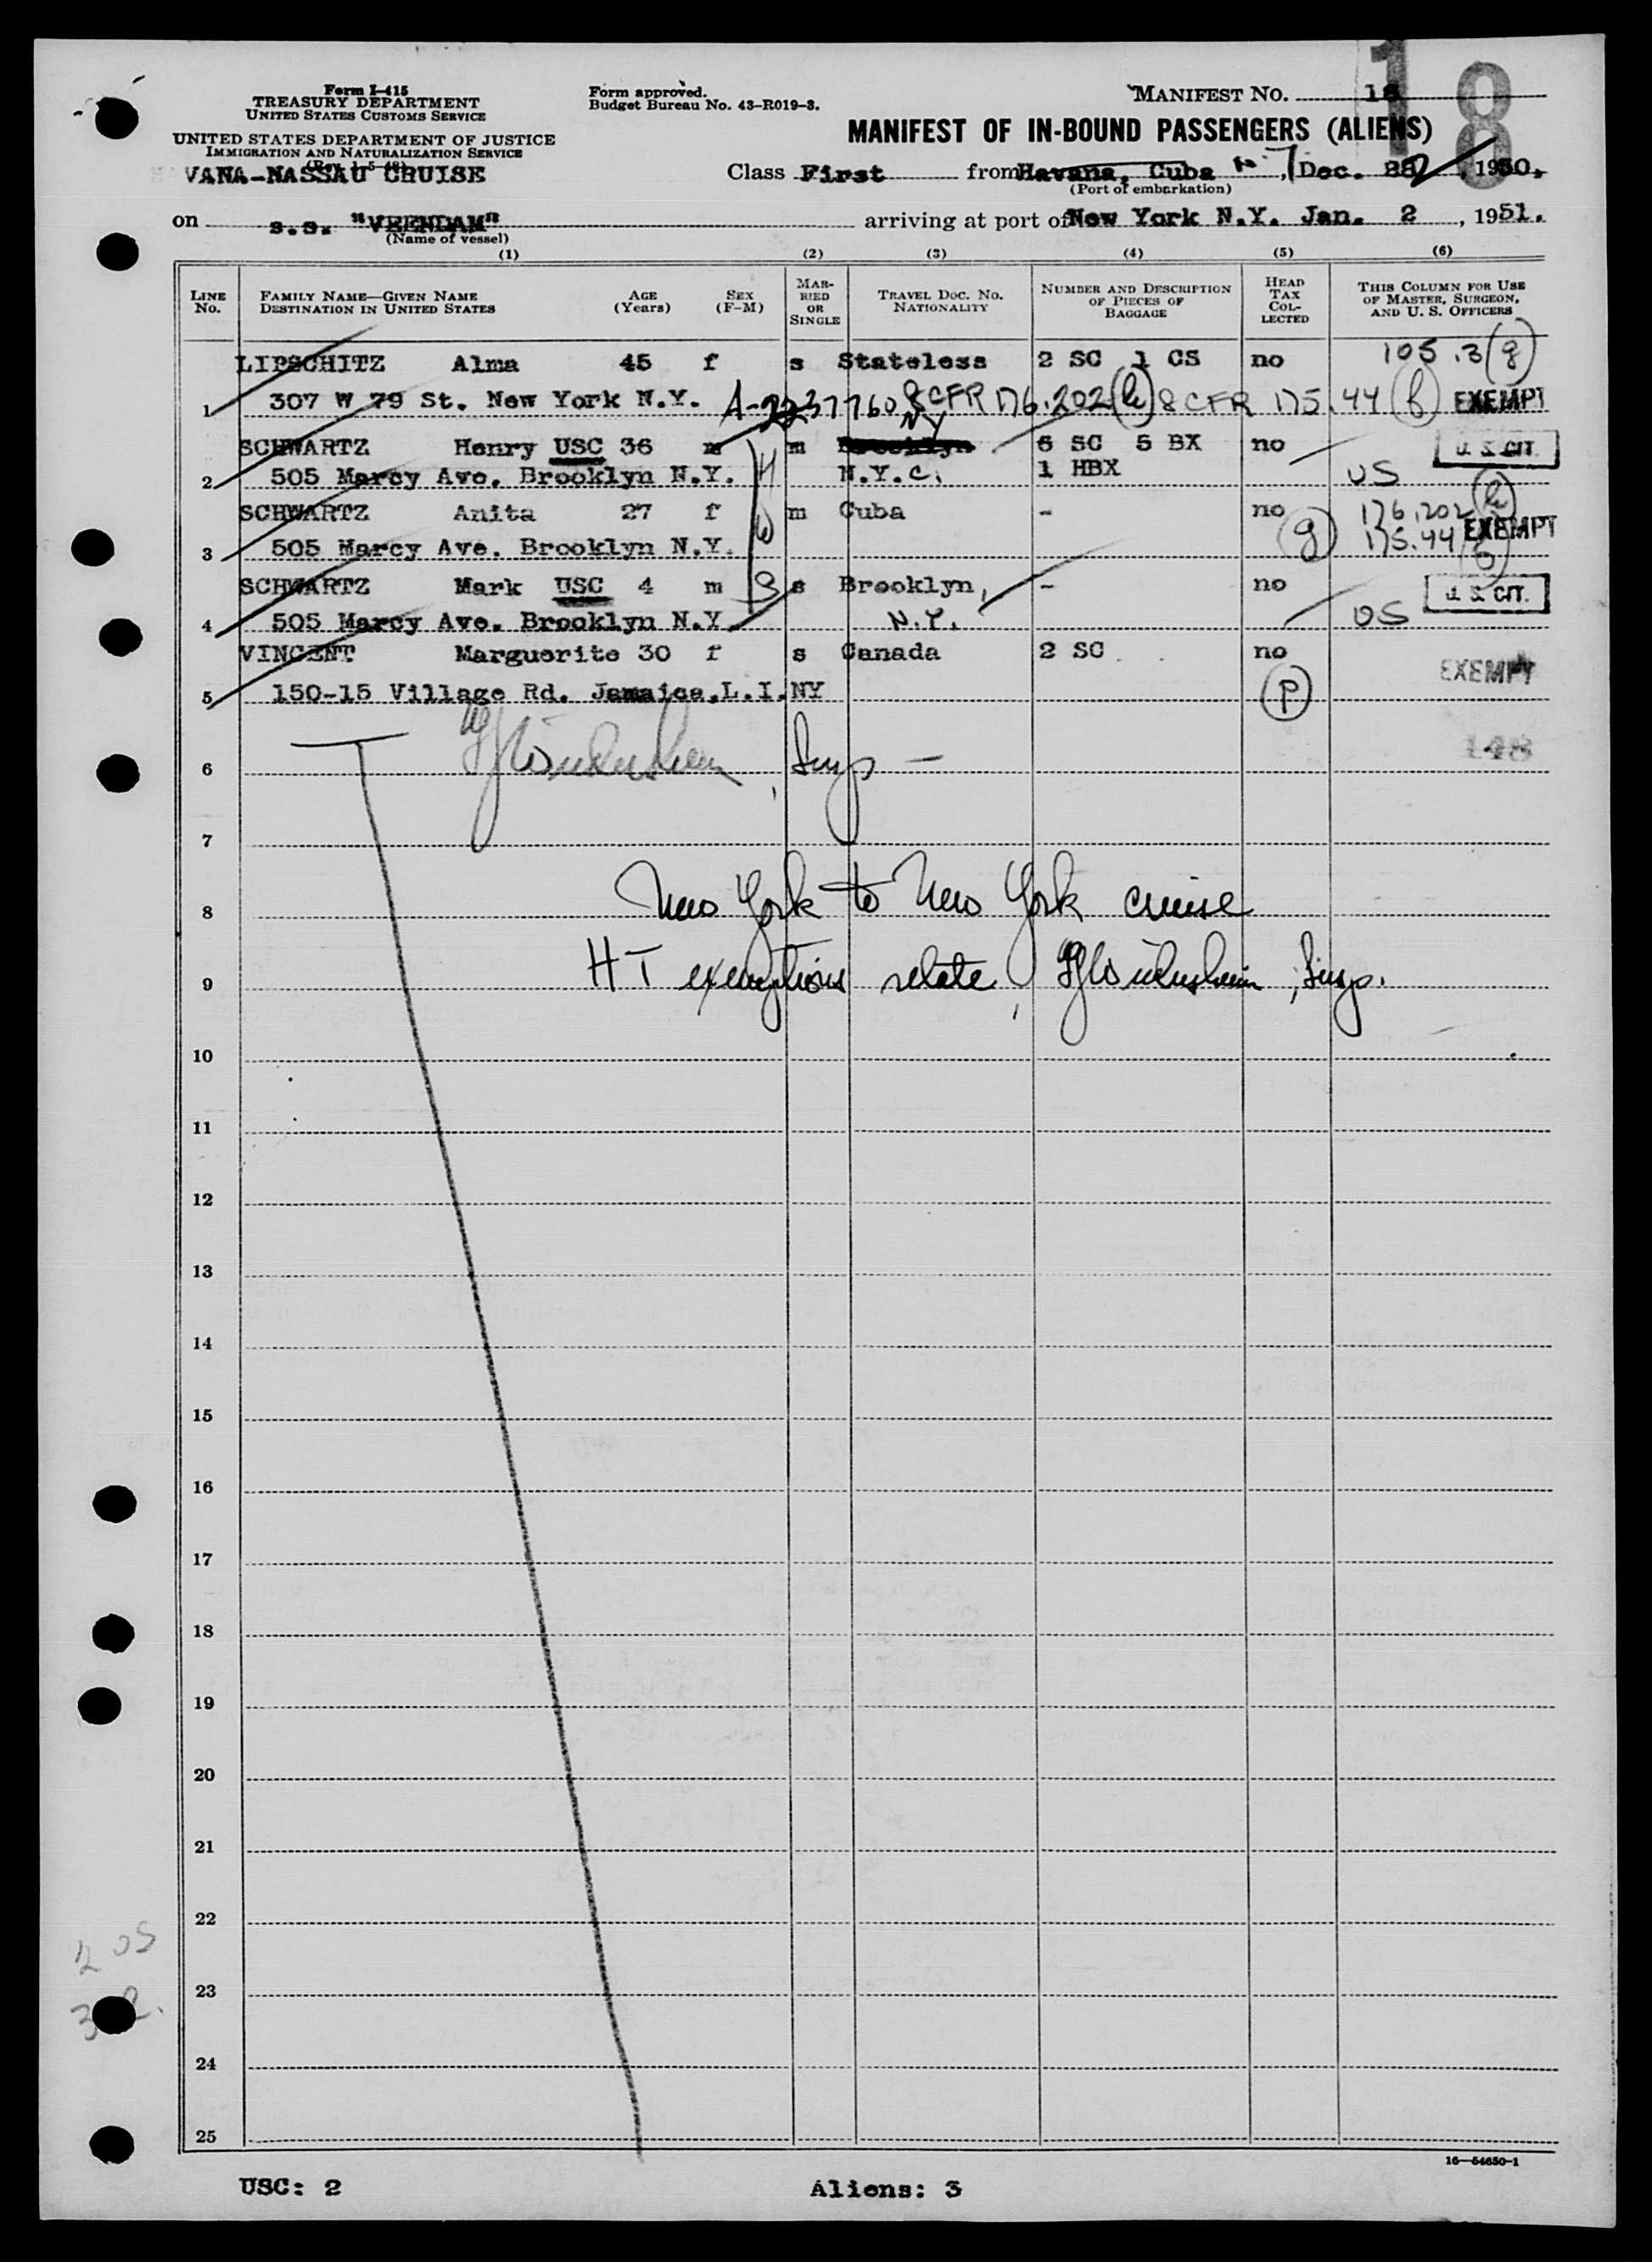 18
Form I-415
TREASURY DEPARTMENT
UNITED STATES CUSTOMS SERVICE
UNITED STATES DEPARTMENT OF JUSTICE
IMMIGRATION AND NATURALIZATION SERVICE
(Rev. 1-5-48)
VANA-NASSAU CRUISE
Form approved.
Budget Bureau No. 43-R019-3.
MANIFEST NO. 18
MANIFEST OF IN-BOUND PASSENGERS (ALIENS)
Class First from Havana, Cuba, Dec. 1950.
(Port of embarkation)
on s.s. "VEENDAM" arriving at port of New York N.Y. Jan. 2, 1951.
(Name of vessel)
(1) (2) (3) (4) (5) (6)
LINE No. FAMILY NAME—GIVEN NAME DESTINATION IN UNITED STATES AGE (Years) SEX (F-M) MARRIED OR SINGLE TRAVEL DOC. NO. NATIONALITY NUMBER AND DESCRIPTION OF PIECES OF BAGGAGE HEAD TAX COLLECTED THIS COLUMN FOR USE OF MASTER, SURGEON, AND U. S. OFFICERS
LIPSCHITZ Alma 45 f s Stateless 2 SC 1 CS no 105.3(g)
1 307 W 79 St. New York N.Y. A-2237760 8 CFR 176.202(h) 8 CFR 175.44(f) EXEMPT
NY
SCHWARTZ Henry USC 36 m m 5 BX no U. S. CIT.
2 505 Marcy Ave. Brooklyn N.Y. H N.Y.C. 1 HBX US
SCHWARTZ Anita 27 f m Cuba - no 176.202(h)
3 505 Marcy Ave. Brooklyn N.Y. W (g) 175.44 EXEMPT
SCHWARTZ Mark USC 4 m S s Brooklyn, - no U. S. CIT.
4 505 Marcy Ave. Brooklyn N.Y. N.Y. US
VINCENT Marguerite 30 f s Canada 2 SC no
5 150-15 Village Rd. Jamaica,L.I.NY (P) EXEMPT
6 Insp - 148
7
8 New York to New York cruise
9 HT exemptions relate, Insp.
10
11
12
13
14
15
16
17
18
19
20
21
22
2 US
23
24
25
16—54650-1
USC: 2 Aliens: 3